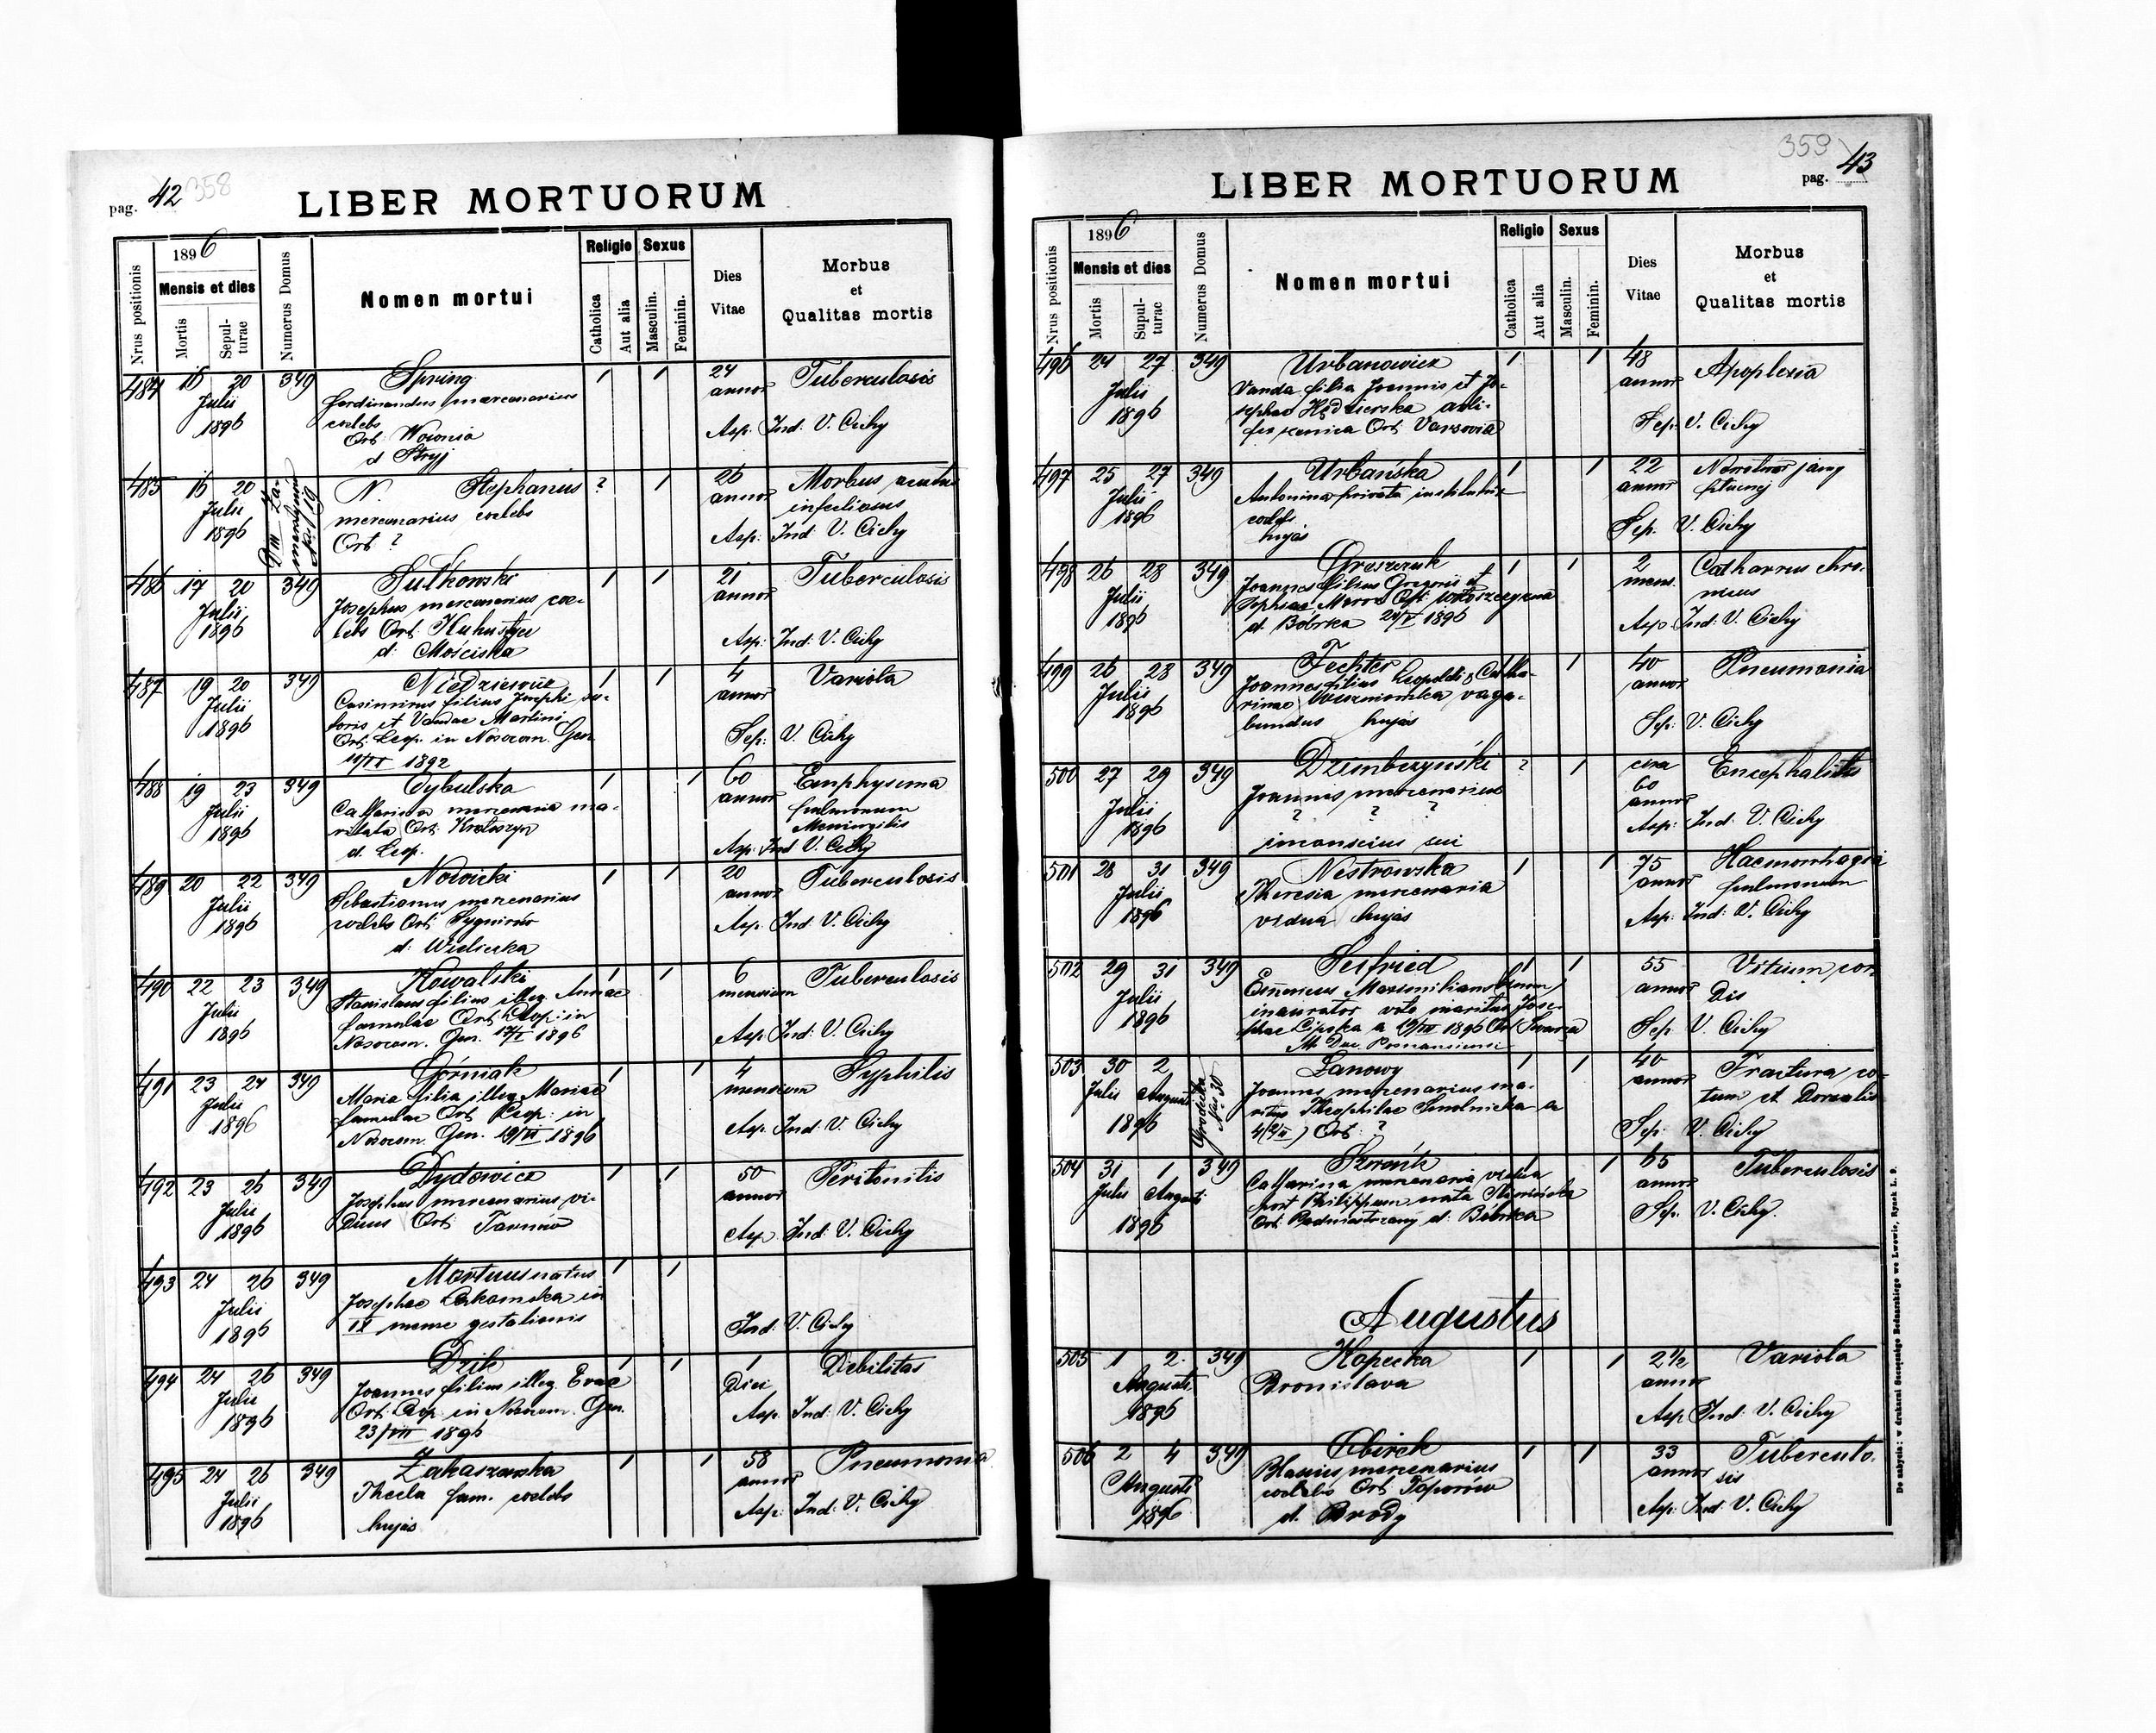 pag. 42 358
LIBER MORTUORUM
Nrus positionis
1896
Mensis et dies
Mortis
Sepulturae
Numerus Domus
Nomen mortui
Religio
Catholica
Aut alia
Sexus
Masculin.
Feminin.
Dies Vitae
Morbus et Qualitas mortis
484 16 20 349 Spring 1 1 24 Tuberculosis
Julii Ferdinandus mercenarius annor
1896 coelebs
Ort: Asp: Ind: V. Cichy
d Stryj
485 16 20 N. Stephanus ? 1 26 Morbus acutus
Julii mercenarius coelebs annor infectiosus
1896 Ort ? Asp: Ind V. Cichy
486 17 20 349 Sutkowski 1 1 21 Tuberculosis
Julii Josephus mercenarius coe- annor
1896 lebs Ort.
d: Mościska Asp: Ind: V. Cichy
487 19 20 349 1 1 4 Variola
Julii Casimirus filius Josephi su- annor
1896 toris et Vandae Martini
Ort. Leop. in Nosocom. Gen Sep: V. Cichy
1892
488 19 23 349 Cybulska 1 1 60 Emphysema
Julii Catharina mercenaria ma- annor pulmonum
1896 ritata Ort:
d. Leop. Asp: Ind V. Cichy
489 20 22 349 Nowicki 1 1 20 Tuberculosis
Julii Sebastianus mercenarius annor
1896 coelebs Ort Asp: Ind: V. Cichy
d: Wieliczka
490 22 23 349 Kowalski 1 1 6 Tuberculosis
Julii Stanislaus filius illeg. Annae mensium
1896 famulae Ort. Leop: in
Nosocom. Gen. 1896 Asp: Ind: V. Cichy
491 23 24 349 Górniak 1 1 4 Syphilis
Julii Maria filia illeg Mariae mensium
1896 famulae Ort Leop: in
Nosocom. Gen. 1896 Asp. Ind: V. Cichy
492 23 26 349 Dydowicz 1 1 50 Peritonitis
Julii Josephus mercenarius vi- annor
1896 duus Ort Tarnów Asp. Ind: V. Cichy
493 24 26 349 Mortuus natus 1 1
Julii Josephae in
1896 IX mense gestationis Ind: V. Cichy
494 24 26 349 Dzik 1 1 1 Debilitas
Julii Joannes filius illeg. Evae Diei
1896 Ort. Leop. in Nosocom. Gen. Asp. Ind: V. Cichy
23/VII 1896
495 24 26 349 Zakaszewska 1 1 58 Pneumonia
Julii Thecla fam. coelebs annor
1896 hujas Asp: Ind: V. Cichy
359 pag. 43
LIBER MORTUORUM
Nrus positionis
1896
Mensis et dies
Mortis
Supulturae
Numerus Domus
Nomen mortui
Religio
Catholica
Aut alia
Sexus
Masculin.
Feminin.
Dies Vitae
Morbus et Qualitas mortis
496 24 27 349 Urbanowicz 1 1 48 Apoplexia
Julii Vanda filia Joannis et Jo- annor
1896 sephae arti-
fex scenica Ort Varsovia Sep: V. Cichy
497 25 27 349 Urbańska 1 1 22
Julii Antonina privata annor
1896 coelebs Sep. V. Cichy
hujas
498 26 28 349 1 1 2 Catharrus chro-
Julii Joannes filius Gregorii et mens. nicus
1896 Sophiae
d. Bóbrka 1896 Asp. Ind: V. Cichy
499 26 28 349 Fechter 1 40 Pneumonia
Julii Joannes filius Leopoldi & Catha- annor
1896 rinae vaga-
bundus hujas Sep: V. Cichy
500 27 29 349 Dzembczyński ? 1 circa Encephalitis
Julii Joannes mercenarius 60
1896 ? ? ? annor
inconscius sui Asp: Ind: V. Cichy
501 28 31 349 Nestrowska 1 1 75 Haemorrhagia
Julii Theresia mercenaria annor pulmonum
1896 vidua hujas Asp: Ind: V. Cichy
502 29 31 349 Seifried 1 1 55 Vitium cor-
Julii Maximilianus annor dis
1896 inaurator
1896 Sep V. Cichy
503 30 2 Grodecka 1 1 40 Fractura
Julii Augusti 30 Łanowy annor
1896 Joannes mercenarius ma-
ritus Theophilae Smolnicka a Sep: V. Cichy
Ort: ?
504 31 1 349 1 1 65 Tuberculosis
Julii Augusti Catharina mercenaria vidua annor
1896 post Philippum nata
Ort. d: Bóbrka Sep. V. Cichy.
Augustus
505 1 2. 349 Kopecka 1 1 2 1/2 Variola
Augusti Bronislava annor
1896 Asp Ind: V. Cichy
506 2 4 349 1 1 33 Tuberculo-
Augusti Blasius mercenarius annor sis
1896 coelebs Ort Toporów
d. Brody Asp: Ind: V. Cichy
Do nabycia: w drukarni Szczęsnego Bednarskiego we Lwowie, Rynek L. 9.